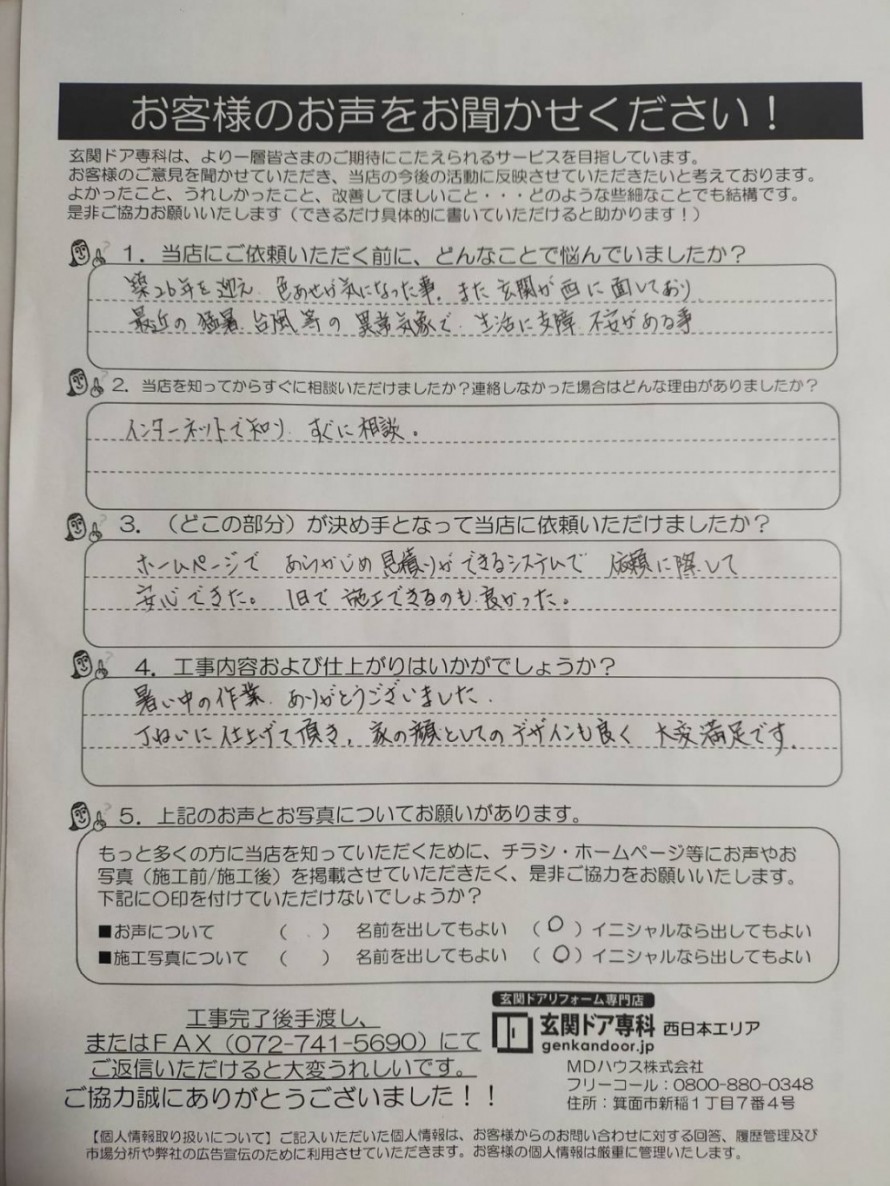 お客様のお声をお聞かせください！
玄関ドア専科は、より一層皆さまのご期待にこたえられるサービスを目指しています。
お客様のご意見を聞かせていただき、当店の今後の活動に反映させていただきたいと考えております。
よかったこと、うれしかったこと、改善してほしいこと・・・どのような些細なことでも結構です。
是非ご協力お願いいたします（できるだけ具体的に書いていただけると助かります！）
1．当店にご依頼いただく前に、どんなことで悩んでいましたか？
築26年を迎え 色あせが気になった事、また玄関が西に面しており
最近の猛暑、台風等の異常気象で 生活に支障 不安がある事
2．当店を知ってからすぐに相談いただけましたか？連絡しなかった場合はどんな理由がありましたか？
インターネットで知り すぐに相談。
3．（どこの部分）が決め手となって当店に依頼いただけましたか？
ホームページで あらかじめ見積りができるシステムで 依頼に際して
安心できた。 1日で施工できるのも良かった。
4．工事内容および仕上がりはいかがでしょうか？
暑い中の作業、ありがとうございました。
丁ねいに仕上げて頂き、家の顔としてのデザインも良く 大変満足です。
5．上記のお声とお写真についてお願いがあります。
もっと多くの方に当店を知っていただくために、チラシ・ホームページ等にお声やお
写真（施工前/施工後）を掲載させていただきたく、是非ご協力をお願いいたします。
下記に〇印を付けていただけないでしょうか？
■お声について （ ） 名前を出してもよい （○）イニシャルなら出してもよい
■施工写真について （ ） 名前を出してもよい （○）イニシャルなら出してもよい
工事完了後手渡し、
またはＦＡＸ（072-741-5690）にて
ご返信いただけると大変うれしいです。
ご協力誠にありがとうございました！！
玄関ドアリフォーム専門店
玄関ドア専科 西日本エリア
genkandoor.jp
MDハウス株式会社
フリーコール：0800-880-0348
住所：箕面市新稲1丁目7番4号
【個人情報取り扱いについて】ご記入いただいた個人情報は、お客様からのお問い合わせに対する回答、履歴管理及び
市場分析や弊社の広告宣伝のために利用させていただきます。お客様の個人情報は厳重に管理いたします。